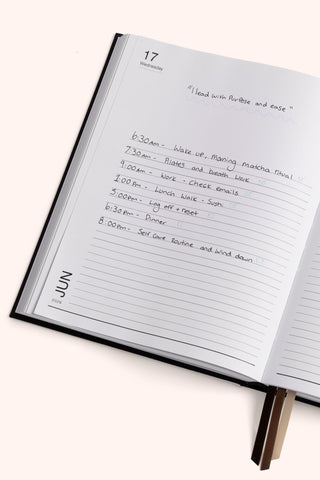 17
Wednesday
"I lead with Purpose and ease"
6:30am - Wake up, morning matcha ritual
7:30am - Pilates and breath work
9:00am - Work - check emails
1:00pm - Lunch Walk - Sushi
5:00pm - Log off + reset
6:30pm - Dinner
8:00pm - Self Care Routine and Wind down
JUN
2026